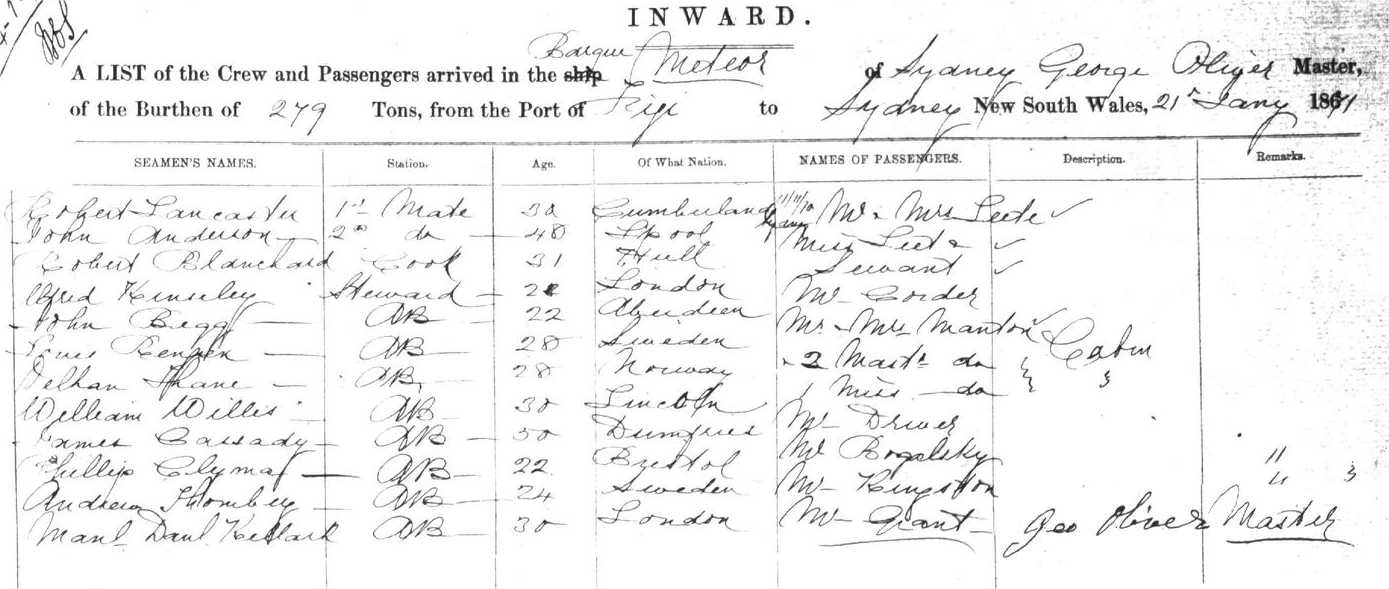 INWARD.
Barque
A LIST of the Crew and Passengers arrived in the ship Meteor of Sydney George Oliver Master,
of the Burthen of 279 Tons, from the Port of Fiji to Sydney New South Wales, 21st Jany 1871
SEAMEN'S NAMES. Station. Age. Of What Nation. NAMES OF PASSENGERS. Description. Remarks.
Robert Lancaster 1st Mate 30 Cumberland Mr & Mrs Leete
John Anderson 2nd do 48 Lpool Miss Leete
Robert Blanchard Cook 31 Hull Servant
Alfred Kinseley Steward London Mr Corder
John Begg AB 22 Aberdeen Mr & Mrs Manton Cabin
AB 28 Sweden 2 Mastr do
Thane AB 28 Norway 1 Miss do "
William Willis AB 30 Lincoln Mr Driver
James Cassady AB 50 Dumfries Mr Rogalsky "
Phillip Clyma AB 22 Bristol Mr Kingston "
Andrew Thomberg AB 24 Sweden Mr Grant
AB 30 London Geo Oliver Master